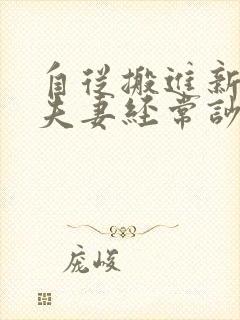 自從搬進新
夫妻經常討
庞峻